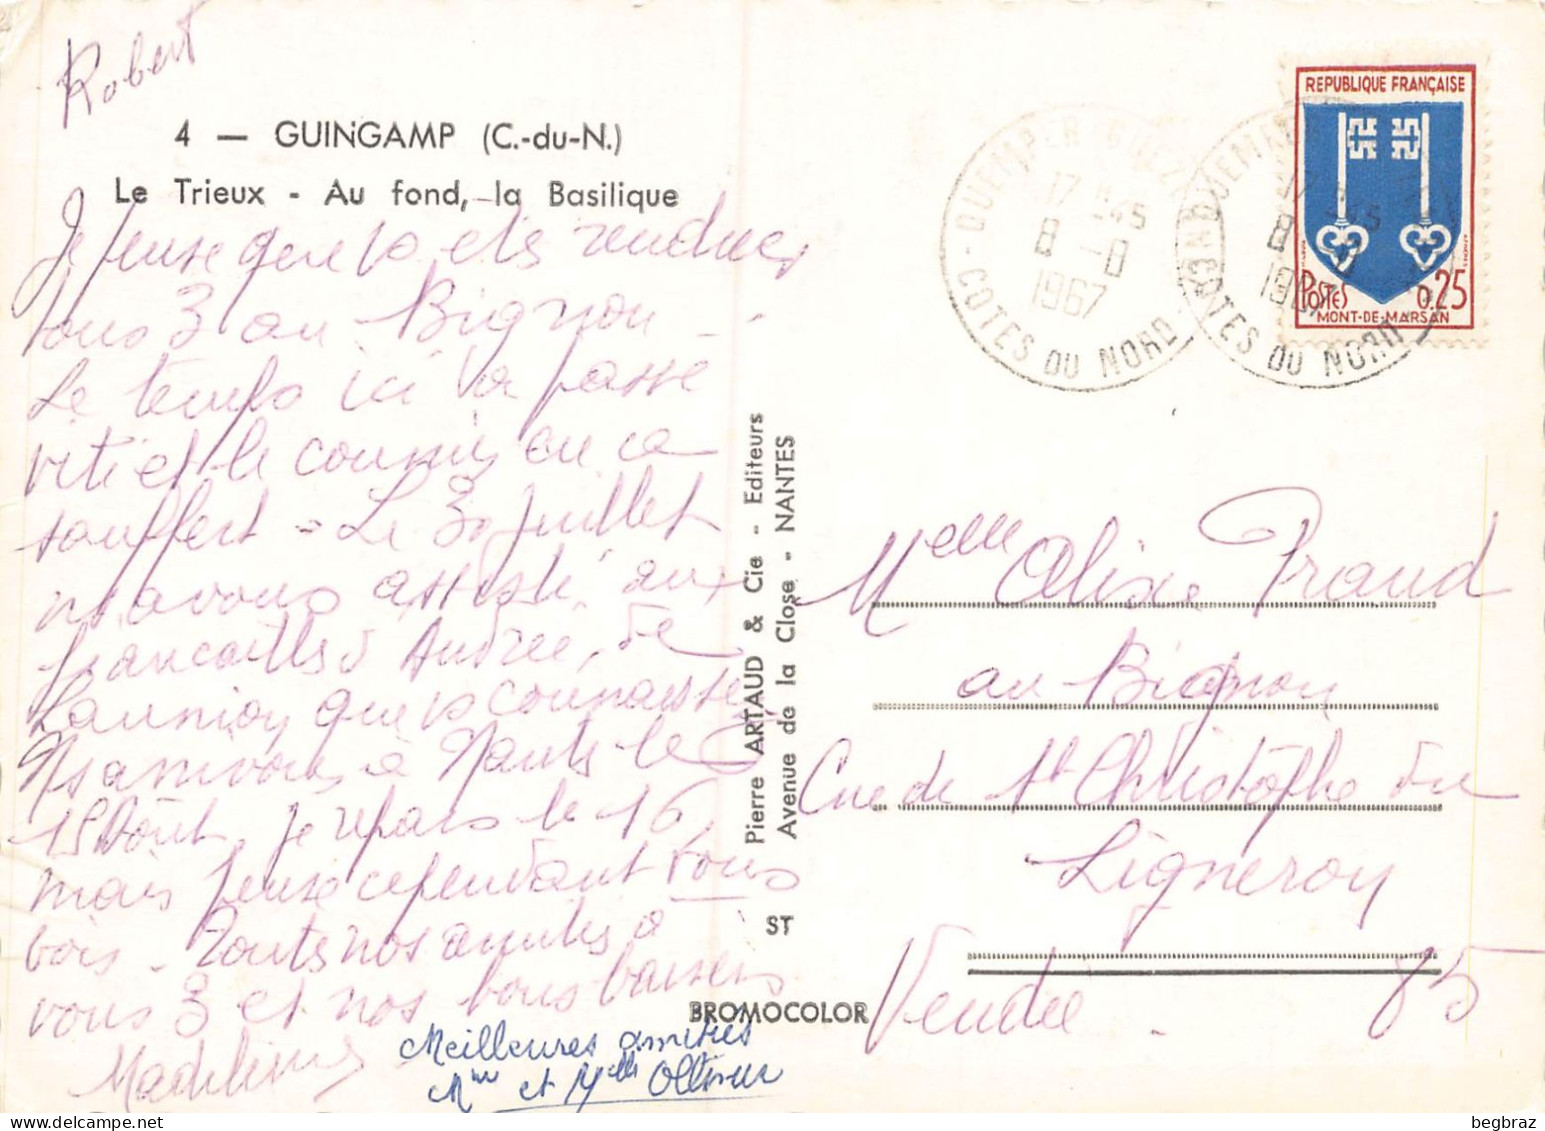 Robert
4 — GUINGAMP (C.-du-N.)
Le Trieux - Au fond, la Basilique
Je pense que vs êts rendues
tous 3 au Bignon -
Le temps ici a passé
vite et le courrier en a
souffert - Le 30 juillet
ns avons assisté aux
fiancailles d'Andrée, de
Lannion que vs connaissez
Ns arrivons à Nants le
15 Août, je repars le 16,
mais pense cependant vous
voir - Touts nos amitiés à
vous 3 et nos bons baisers
Madeleine
Meilleures amitiés
Mme et Melle Ollivier
Pierre ARTAUD & Cie - Editeurs
Avenue de la Close - NANTES
ST
BROMOCOLOR
QUEMPER GUEZ
17 H 45
8 -8
1967
COTES DU NORD
QUEMPER
8
1967
COTES DU NORD
REPUBLIQUE FRANÇAISE
POSTES 0,25
MONT-DE-MARSAN
Melle Alixe Praud
au Bignon
Cne de St Christophe du
Ligneron
Vendée - 85
begbraz